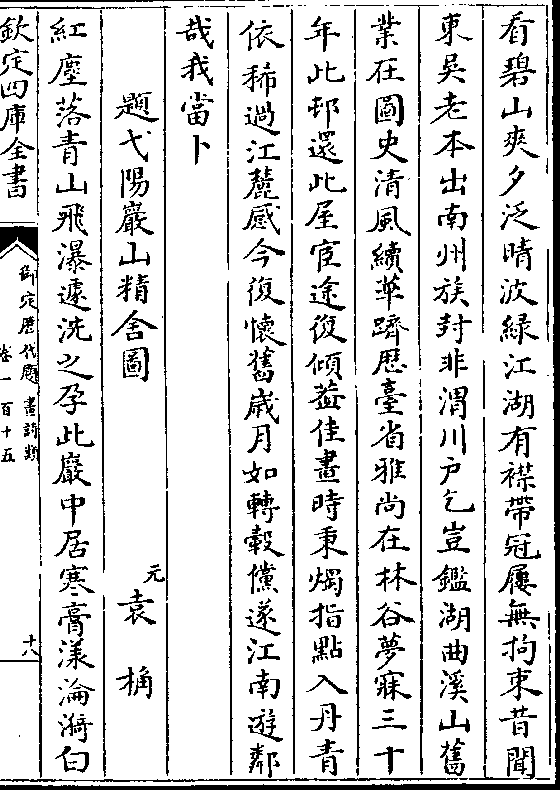 看碧山爽夕泛晴波緑江湖有襟帶冠屨無拘束昔聞
東吳老本出南州族封非渭川户乞豈鑑湖曲溪山舊
業在圖史清風續華躋歴臺省雅尚在林谷夢寐三十
年此邨還此屋宦途復傾葢佳畫時秉燭指點入丹青
依稀過江麓感今復懷舊嵗月如轉轂儻遂江南遊鄰
哉我當卜
題弋陽巖山精舍圖
元袁桷
紅塵落青山飛瀑遽洗之孕此巖中居寒膏漾淪漪白
欽定四庫全書
御定歴代題畫詩類
卷一百十五
十八